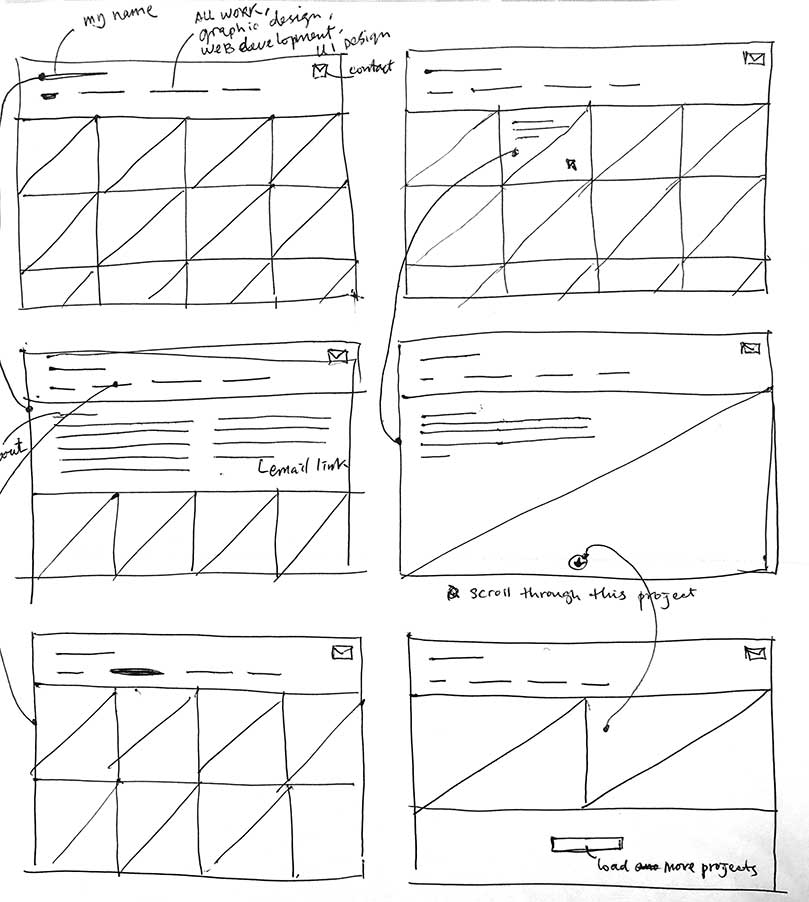 my name
All work,
graphic design,
web development,
UI Design
contact
out
email link
scroll through this project
load more projects